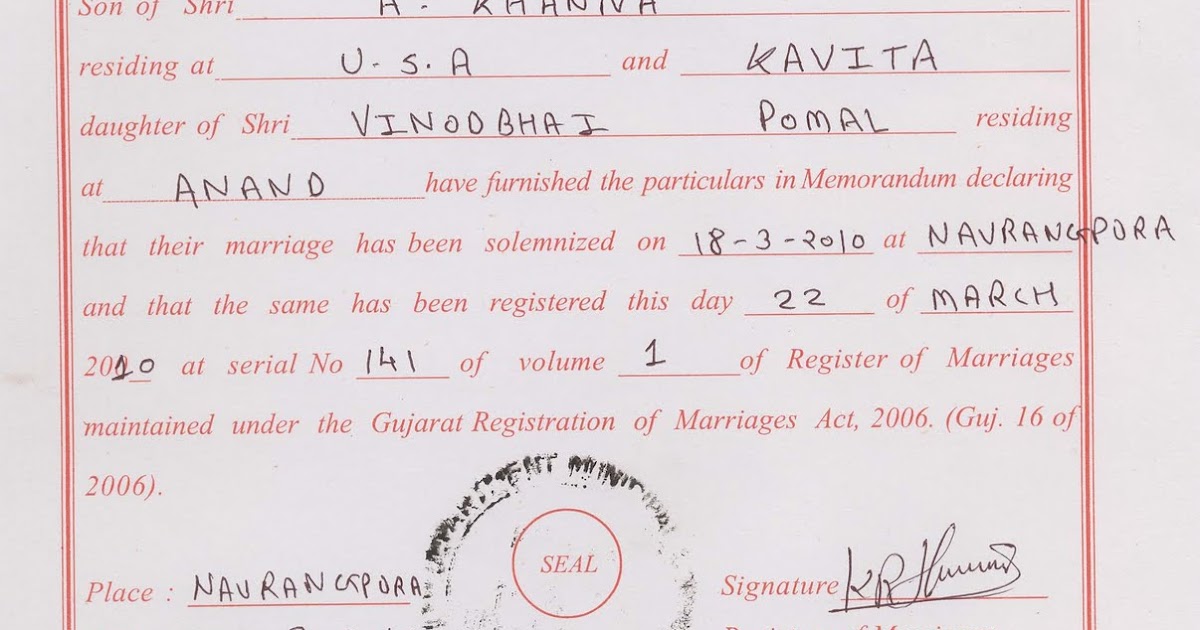 Son of Shri A. KHANNA
residing at U.S.A and KAVITA
daughter of Shri VINODBHAI POMAL residing
at ANAND have furnished the particulars in Memorandum declaring
that their marriage has been solemnized on 18-3-2010 at NAVRANGPURA
and that the same has been registered this day 22 of MARCH
2010 at serial No 141 of volume 1 of Register of Marriages
maintained under the Gujarat Registration of Marriages Act, 2006. (Guj. 16 of
2006).
MUNICIPAL
SEAL
Place : NAVRANGPURA Signature